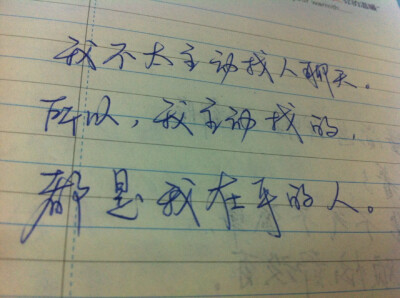 我不太主动找人聊天。
所以，我主动找的，
都是我在乎的人。